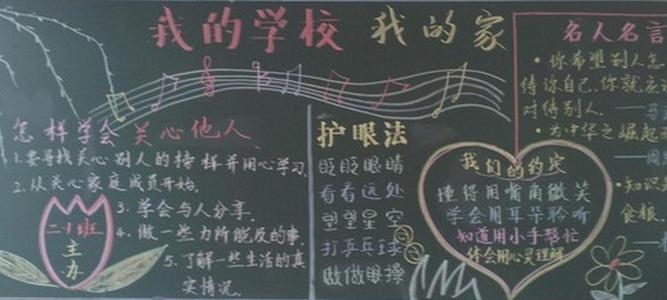 我的学校 我的家
怎样学会关心他人
1.要寻找关心别人的榜样并用心学习
2.从关心家庭成员开始.
3.学会与人分享.
4.做一些力所能及的事.
5.了解一些生活的真
实情况.
二·1班
主
办
护眼法
眨眨眼睛
看看远处
望望星空
打乒乓球
做做眼操
我们的约定
懂得用嘴角微笑
学会用耳朵聆听
知道用小手帮忙
体会用心灵理解
名人名言
·你希望别人怎
待你自己,你就应
对待别人.
·为中华之崛起
·知识
食粮